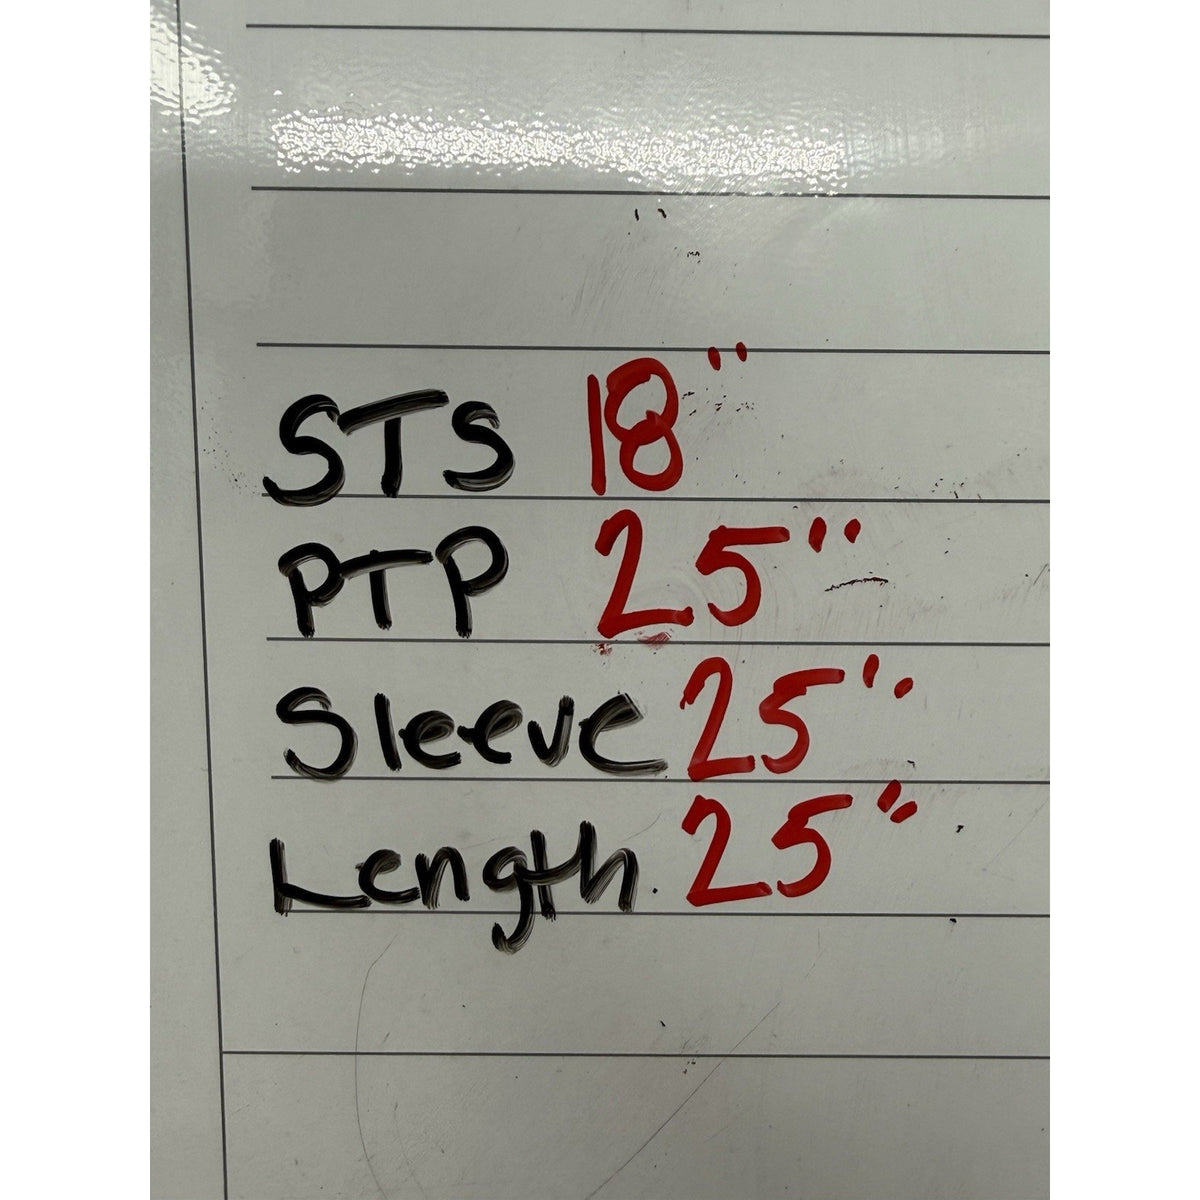 STS 18"
PTP 25"
Sleeve 25"
Length. 25"